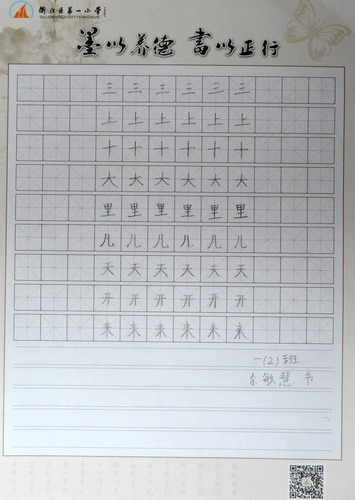 衢江区第一小学
QUJIANGQUDIYIXIAOXUE
墨以养德 書以正行
三三三三三三
上上上上上上
十十十十十十
大大大大大大
里里里里里里
儿儿儿儿儿儿
天天天天天天
开开开开开开
来来来来来来
一(2)班
余敏慧 书